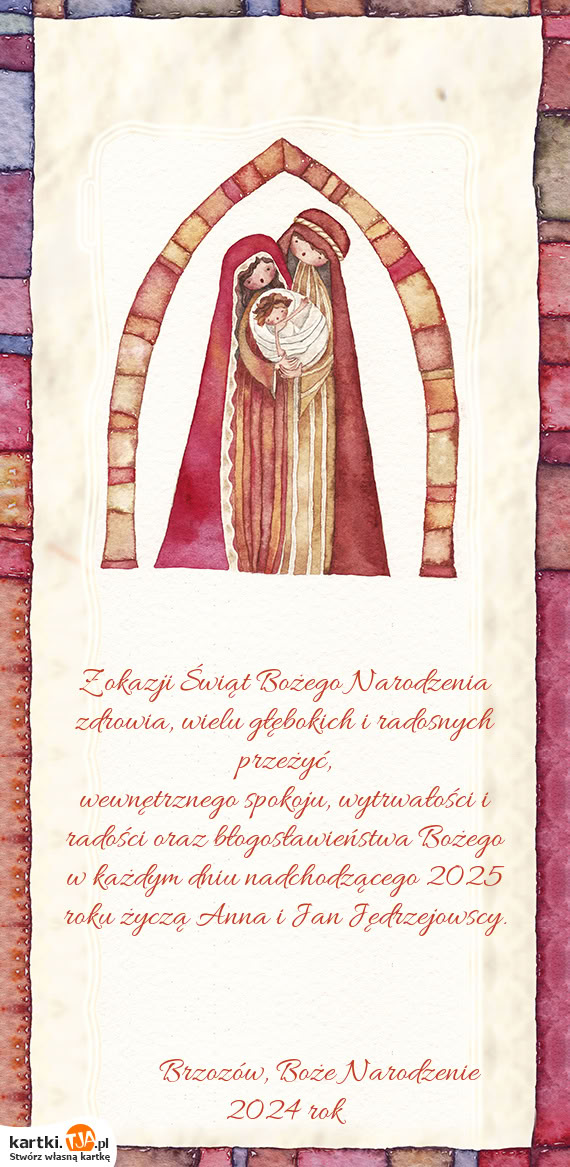 Z okazji Świąt Bożego Narodzenia
zdrowia, wielu głębokich i radosnych
przeżyć,
wewnętrznego spokoju, wytrwałości i
radości oraz błogosławieństwa Bożego
w każdym dniu nadchodzącego 2025
roku życzą Anna i Jan Jędrzejowscy.
Brzozów, Boże Narodzenie
2024 rok
kartki.TJA.pl
Stwórz własną kartkę